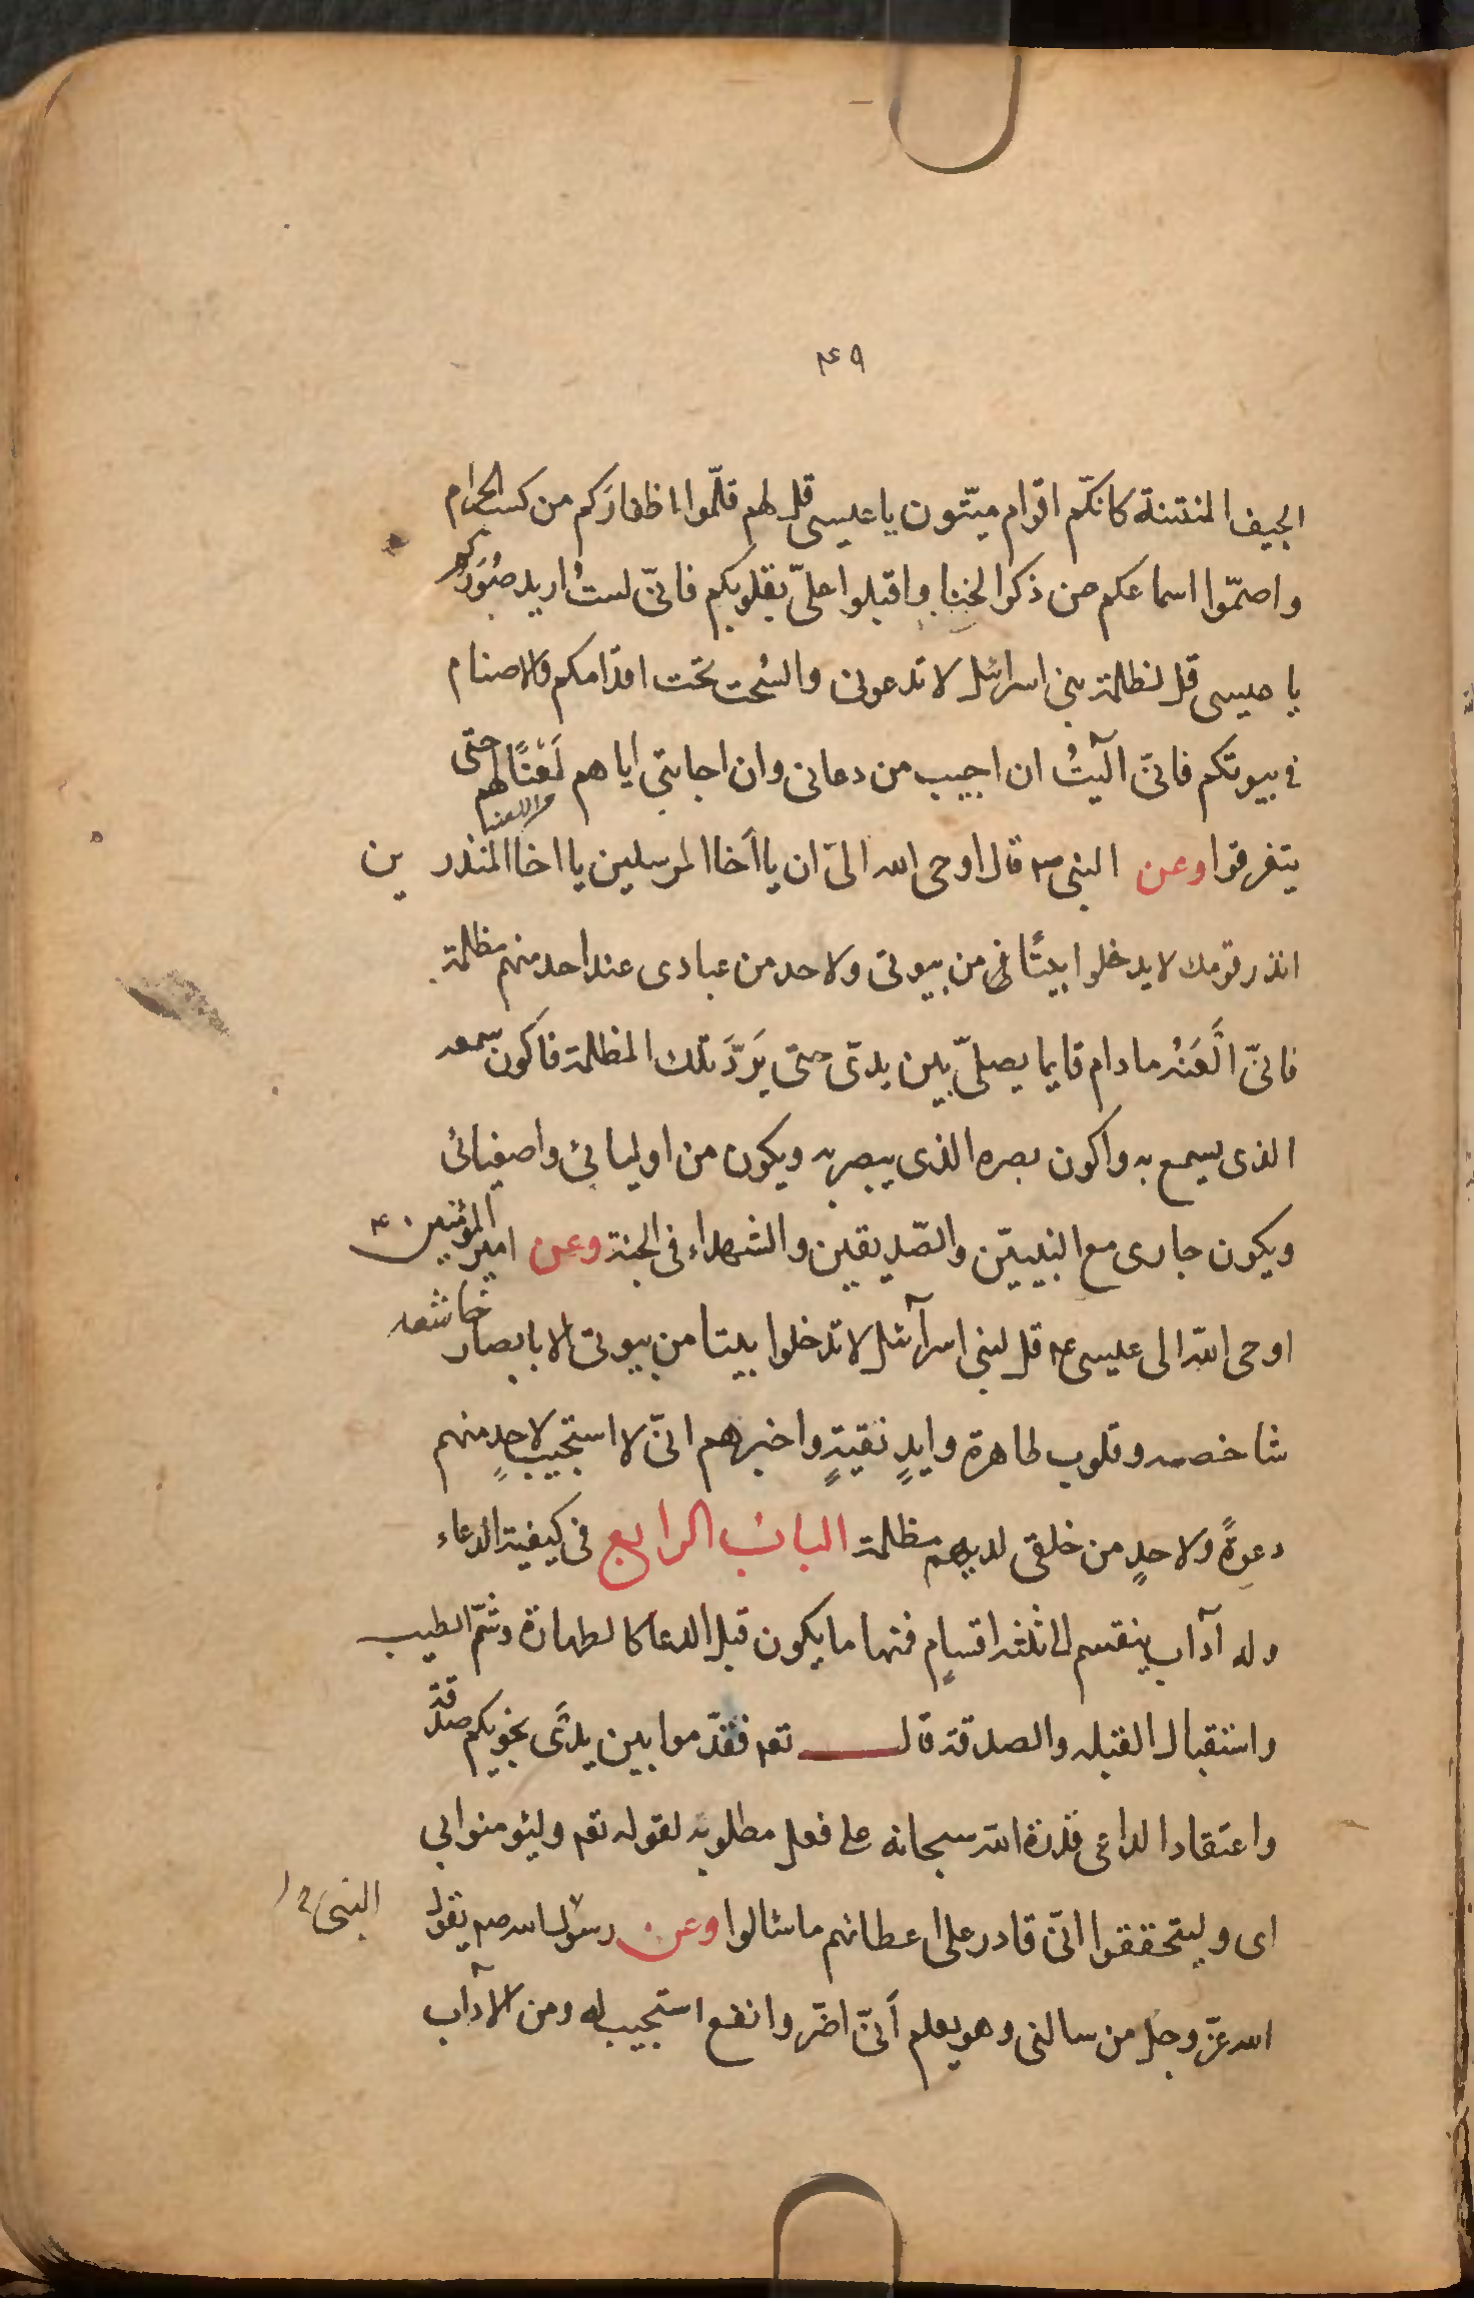 ٤٩
الجيف المنتنة كانكّم اقوام ميّتون يا عيسى قل لهم قلّموا اظفارَكم من كسب الحرام
واصمّوا اسماعكم من ذكر الخنا واقبلوا علىّ بقلوبكم فانىّ لستُ اريد صُوَركم
يا عيسى قل لظلمة بنى اسرائيل لا تدعونى والسُحت تحت اقدامكم والاصنام
فى بيوتكم فانىّ آليتُ ان اجيب من دعانى وان اجابتى اياهم لَعْنًا لهم حتى
يتفرقوا وعن النبى ص قال اوحى الله الىّ ان يا أخا المرسلين يا اخا المنذرين
انذر قومك لا يدخلوا بيتًا من بيوتى ولاحد من عبادى عند احد منهم مظلمة
فانىّ الَعَنُه مادام قايما يصلىّ بين يدىّ حتى يَردَّ تلك المظلمة فاكون سمعه
الذى يسمع به واكون بصره الذى يبصر به ويكون من اوليائى واصفيائى
ويكون جارى مع النبييّن والصّديقين والشهداء فى الجنة وعن امير المؤمنين ع
اوحى الله الى عيسى ع قل لبنى اسرآئيل لا تدخلوا بيتا من بيوتى الا بابصار خاشعه
شاخصه وقلوب طاهرة وايدٍ نقيةٍ واخبرهم انىّ لا استجيب لاحدٍ منهم
دعوةً ولاحدٍ من خلقى لديهم مظلمة الباب الرابع فى كيفية الدعاء
وله آداب ينقسم الى ثلثه اقسامٍ فمنها ما يكون قبل الدعا كالطهارة وشمّ الطيب
واستقبال القبله والصدقة قال تعم فقدّموا بين يدَى نجويكم صدقة
واعتقاد الداعى قدرة الله سبحانه على فعل مطلوبه لقوله تعم وليؤمنوا بى
اى وليتحققوا انىّ قادر على اعطائهم ما سالوا وعن رسول الله صم يقول
النبى
الله عزّ وجل من سالنى وهو يعلم أنىّ اضّر وانفع استجيب له ومن الآداب